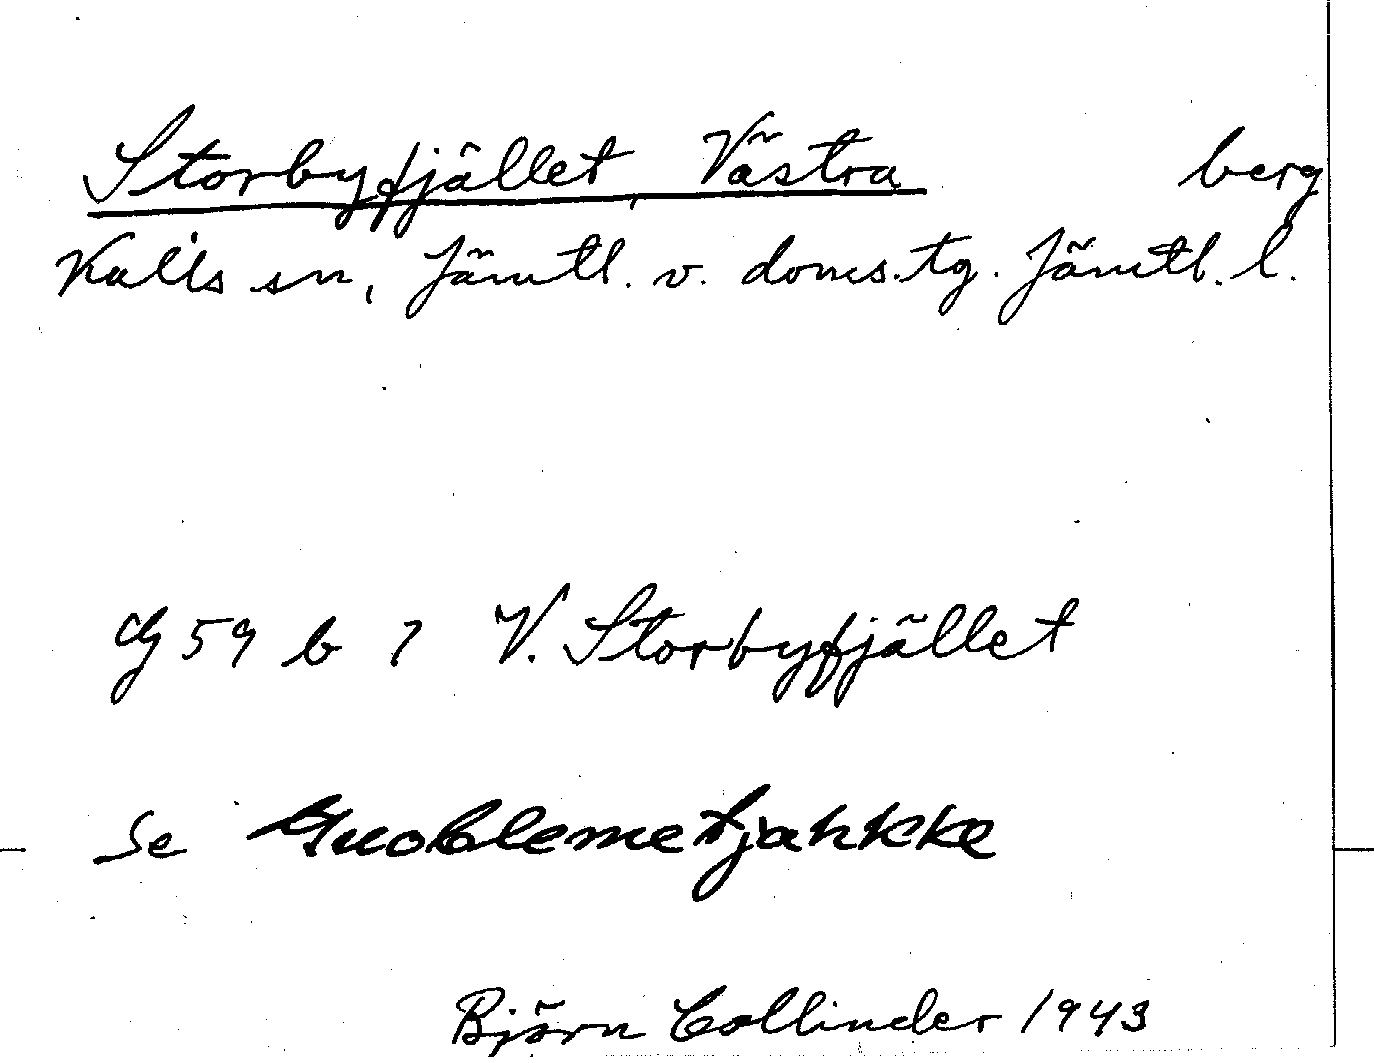 Storbyfjället, Västra berg
Kalls sn, Jämtl. v. doms.tg. Jämtl. l.
Gj 59 b 1 V. Storbyfjället
Se Guoblemetjahkke
Björn Collinder 1943